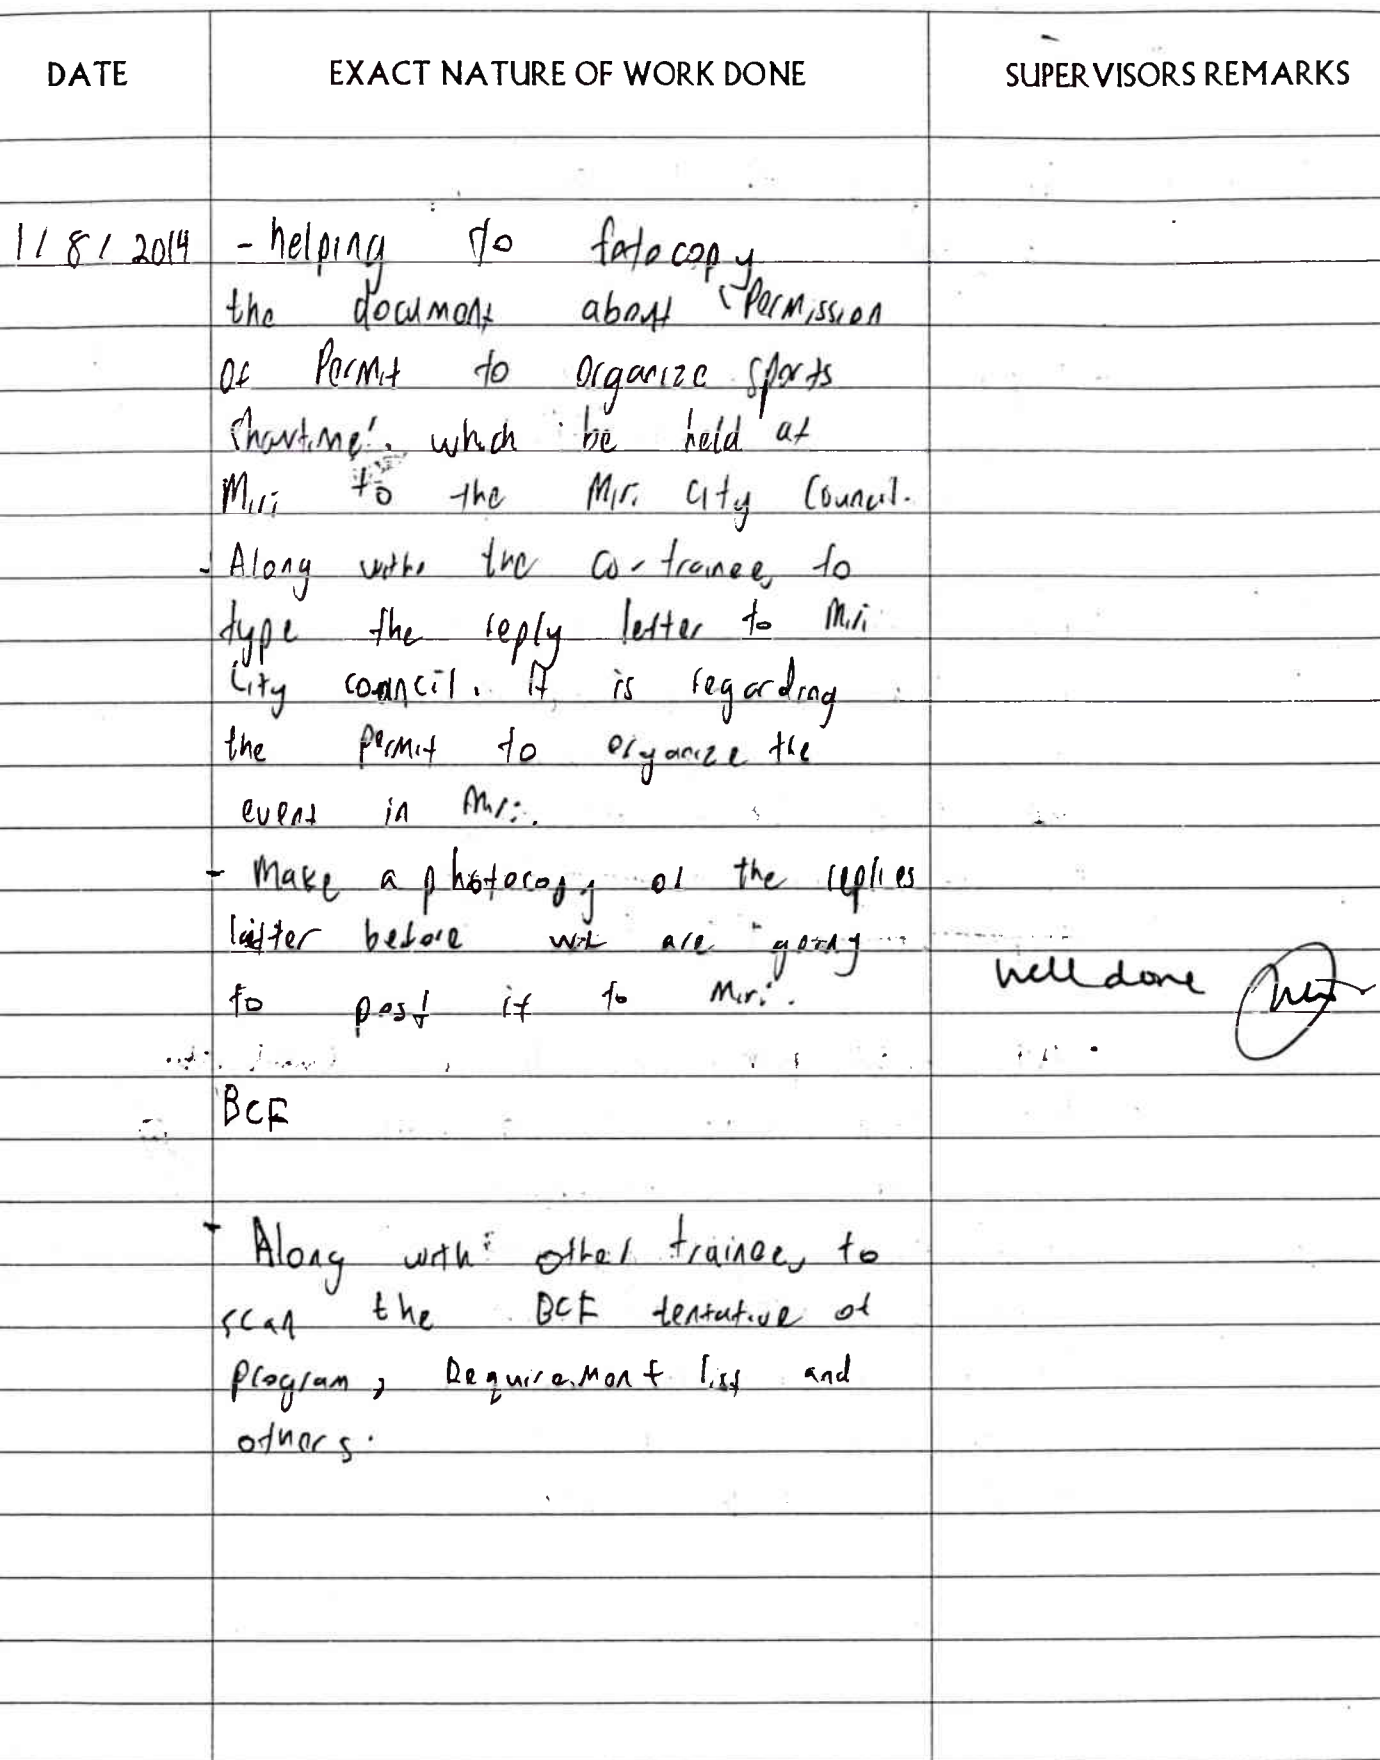 DATE EXACT NATURE OF WORK DONE SUPERVISORS REMARKS
1/8/2014 - helping to fotocopy
the document about 'Permission
of Permit to organize sports
which be held at
Miri to the Miri City Council.
- Along with the co-trainee, to
type the reply letter to Miri
City council. It is regarding
the permit to organize the
event in Miri.
- Make a photocopy of the replies
letter before we are going
to post it to Miri. well done
BCF
- Along with other trainee, to
scan the BCF tentative of
program, Requirement list and
others.